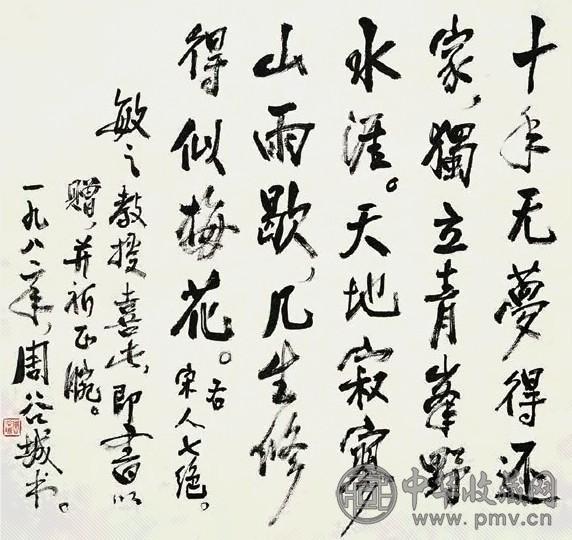 十年无夢得還
家，獨立青峯野
水涯。天地寂寥
山雨歇，几生修
得似梅花。右
宋人七绝。
敏之教授喜此，即書以
赠，并祈正腕。
一九八二年，周谷城书。
中华收藏网
www.pmv.cn